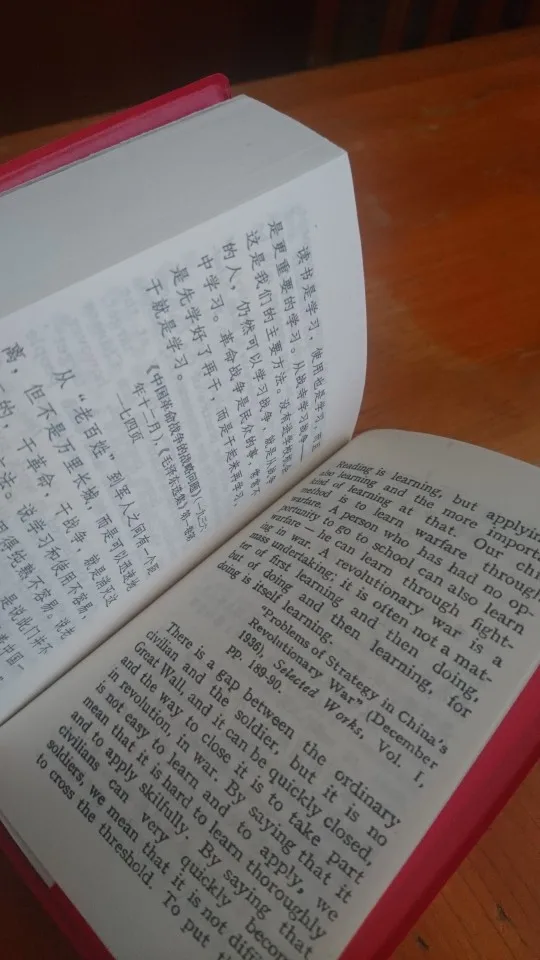 读书是学习，使用也是学习，而且
是更重要的学习。从战争学习战争——
这是我们的主要方法。没有进学校机会
的人，仍然可以学习战争，就是从战争
中学习。革命战争是民众的事，常常不
是先学好了再干，而是干起来再学习，
干就是学习。
《中国革命战争的战略问题》（一九三六
年十二月），《毛泽东选集》第一卷第
一七四页
从“老百姓”到军人之间有一个距
离，但不是万里长城，而是可以迅速地
的，干革命，干战争，就是消灭这
法。说学习和使用不容易，
得纯熟不容易。说老
是说此门并不
Reading is learning, but applying
also learning and the more important
kind of learning at that. Our chief
method is to learn warfare through
warfare. A person who has had no op-
portunity to go to school can also learn
warfare — he can learn through fight-
ing in war. A revolutionary war is a
mass undertaking; it is often not a mat-
ter of first learning and then doing,
but of doing and then learning, for
doing is itself learning.
"Problems of Strategy in China's
Revolutionary War" (December
1936), Selected Works, Vol. I,
pp. 189-90.
There is a gap between the ordinary
civilian and the soldier, but it is no
Great Wall, and it can be quickly closed,
and the way to close it is to take part
in revolution, in war. By saying that it
is not easy to learn and to apply, we
mean that it is hard to learn thoroughly
and to apply skilfully. By saying that
civilians can very quickly become
soldiers, we mean that it is not diffi
to cross the threshold. To put